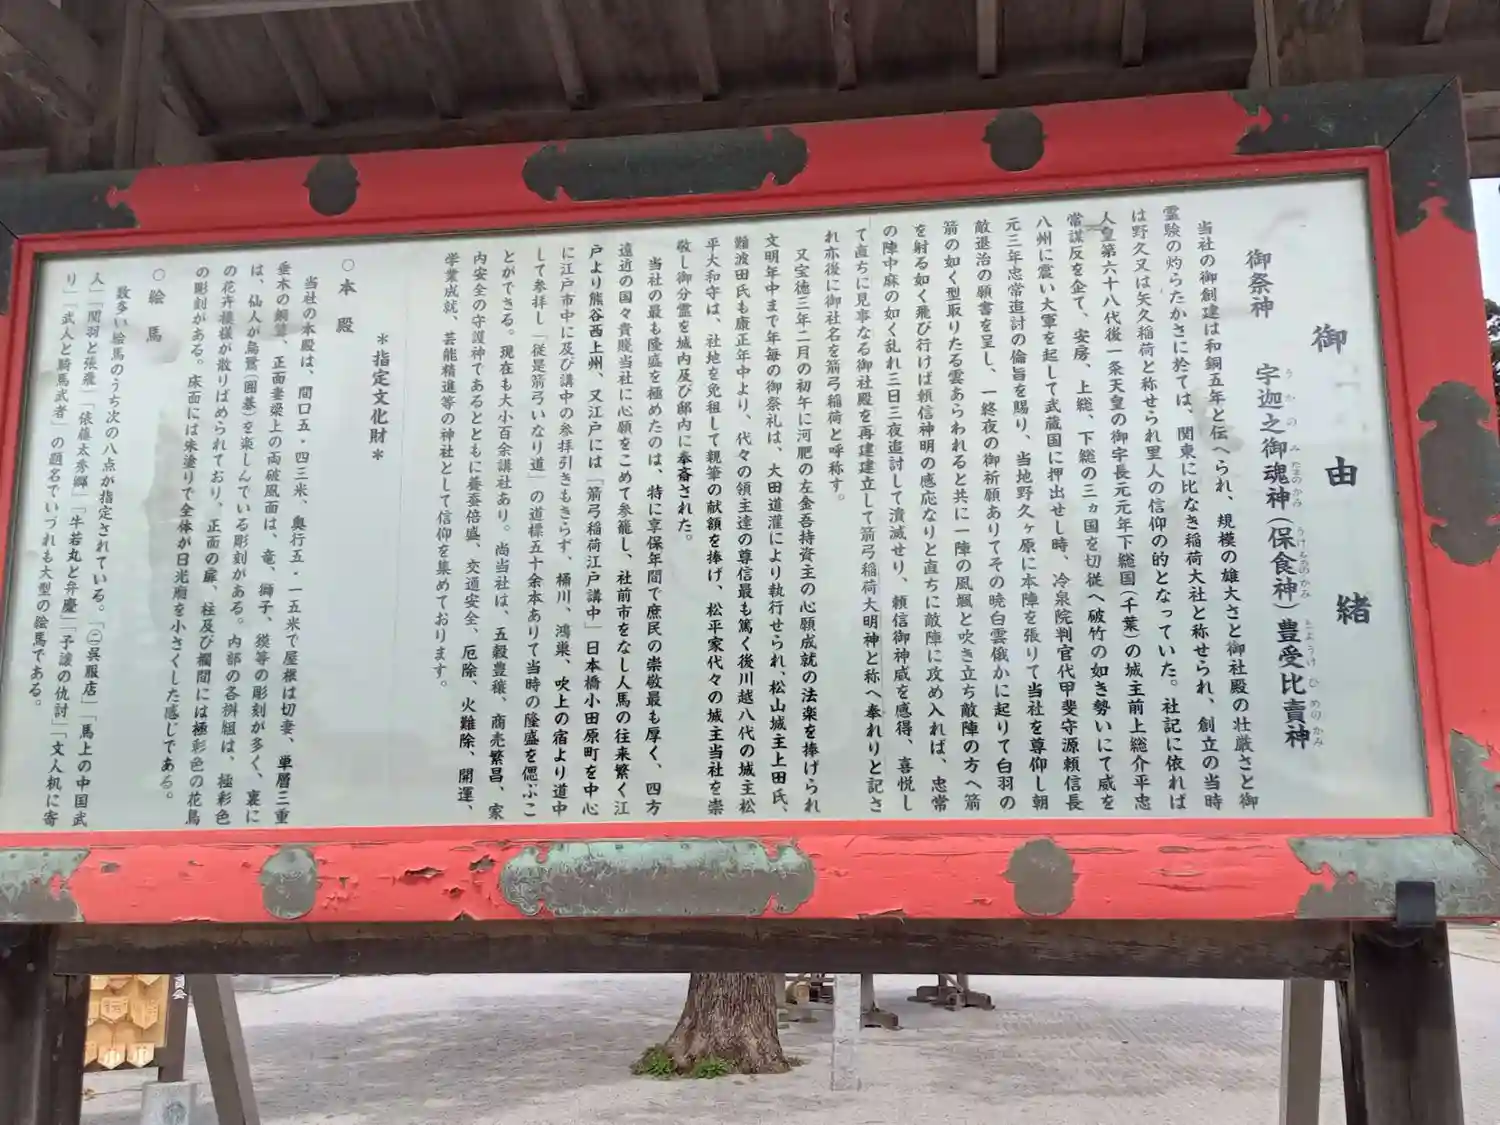 御由緒
御祭神 宇迦之御魂神(保食神)豊受比賣神
うかのみたまのかみ うけもちのかみ とようけひめのかみ
当社の御創建は和銅五年と伝へられ、規模の雄大さと御社殿の壮厳さと御
霊験の灼らたかさに於ては、関東に比なき稲荷大社と称せられ、創立の当時
は野久又は矢久稲荷と称せられ里人の信仰の的となっていた。社記に依れば
人皇第六十八代後一条天皇の御宇長元元年下総国(千葉)の城主前上総介平忠
常謀反を企て、安房、上総、下総の三ヵ国を切従へ破竹の如き勢いにて威を
八州に震い大軍を起して武蔵国に押出せし時、冷泉院判官代甲斐守源頼信長
元三年忠常追討の倫旨を賜り、当地野久ヶ原に本陣を張りて当社を尊仰し朝
敵退治の願書を呈し、一終夜の御祈願ありてその暁白雲俄かに起りて白羽の
箭の如く型取りたる雲あらわれると共に一陣の風颯と吹き立ち敵陣の方へ箭
を射る如く飛び行けば頼信神明の感応なりと直ちに敵陣に攻め入れば、忠常
の陣中麻の如く乱れ三日三夜追討して潰滅せり、頼信御神威を感得、喜悦し
て直ちに見事なる御社殿を再建建立して箭弓稲荷大明神と称へ奉れりと記さ
れ亦後に御社名を箭弓稲荷と呼称す。
又宝徳三年二月の初午に河肥の左金吾持資主の心願成就の法楽を捧げられ
文明年中まで年毎の御祭礼は、大田道灌により執行せられ、松山城主上田氏、
難波田氏も康正年中より、代々の領主達の尊信最も篤く後川越八代の城主松
平大和守は、社地を免租して親筆の献額を捧げ、松平家代々の城主当社を崇
敬し御分霊を城内及び邸内に奉斎された。
当社の最も隆盛を極めたのは、特に享保年間で庶民の崇敬最も厚く、四方
遠近の国々貴賤当社に心願をこめて参籠し、社前市をなし人馬の往来繁く江
戸より熊谷西上州、又江戸には「箭弓稲荷江戸講中」日本橋小田原町を中心
に江戸市中に及び講中の参拝引きもきらず、桶川、鴻巣、吹上の宿より道中
して参拝し「従是箭弓いなり道」の道標五十余本ありて当時の隆盛を偲ぶこ
とができる。現在も大小百余講社あり。尚当社は、五穀豊穣、商売繁昌、家
内安全の守護神であるとともに養蚕倍盛、交通安全、厄除、火難除、開運、
学業成就、芸能精進等の神社として信仰を集めております。
*指定文化財*
○本殿
当社の本殿は、間口五・四三米、奥行五・一五米で屋根は切妻、単層三重
垂木の銅葺、正面妻梁上の両破風面は、竜、獅子、獏等の彫刻が多く、裏に
は、仙人が烏鷺(囲碁)を楽しんでいる彫刻がある。内部の各桝組は、極彩色
の花卉模様が散りばめられており、正面の扉、柱及び欄間には極彩色の花鳥
の彫刻がある。床面には朱塗りで全体が日光廟を小さくした感じである。
○絵馬
数多い絵馬のうち次の八点が指定されている。「㊁呉服店」「馬上の中国武
人」「関羽と張飛」「俵藤太秀郷」「牛若丸と弁慶」「予譲の仇討」「文人机に寄
り」「武人と騎馬武者」の題名でいづれも大型の絵馬である。